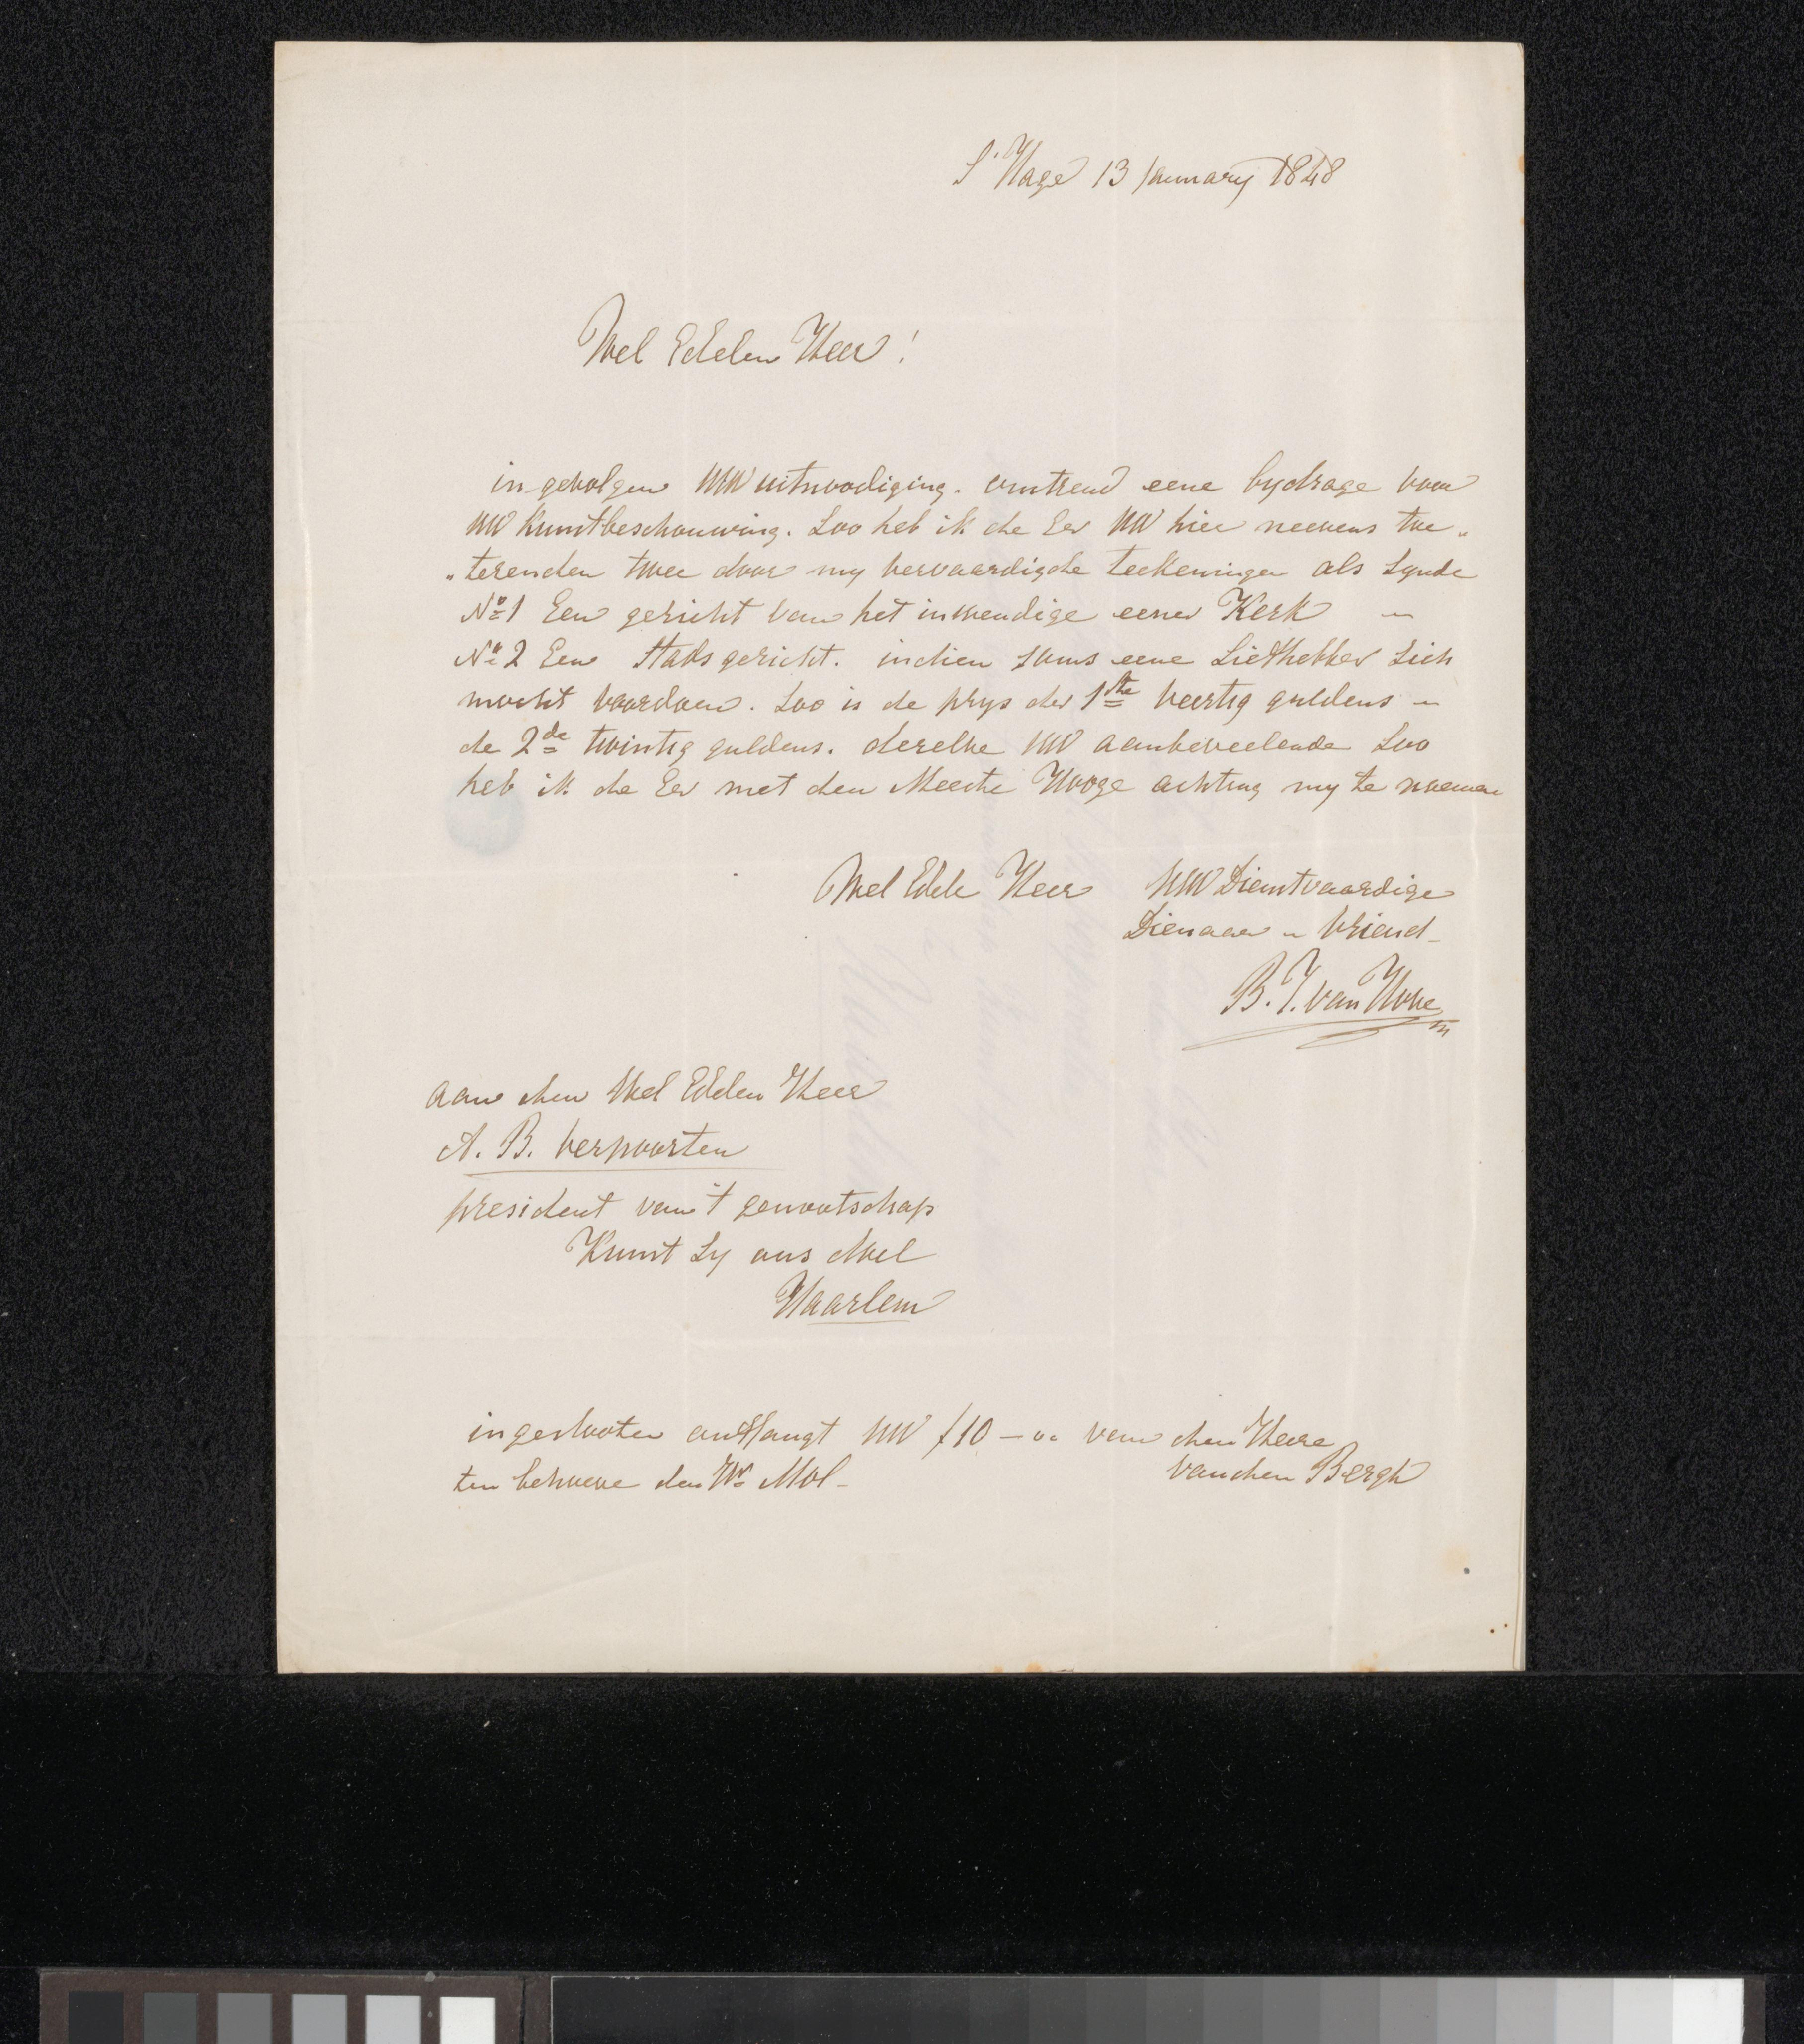 S' Hage 13 January 1848
Wel Edelen Heer!
in gevolgen UW uitnoodiging. omtrend eene bydrage voor
UW Kunstbeschouwing. Zoo heb ik de Eer UW hier neevens toe „
„ tezenden twee door my vervaardigde teekeningen als zynde
No 1 Een gezicht van het inwendige eener Kerk en
No 2 Een Stads gezicht. indien soms eene Liefhebber zich
mocht voordoen. Zoo is de prys der 1ste veertig guldens en
de 2de twintig guldens. dezelve UW aanbeveelende Zoo
heb ik de Eer met den Meeste Hooge achting my te noemen
Wel Edele Heer UW Dienstvaardige
Dienaar en Vriend
B. J. van Hove
aan den Wel Edelen Heer
A. B. Verpoorten
president van 't genootschap
Kunst Zy ons doel
Haarlem
ingeslooten ontfangt UW f 10 - van den Heere
ten behoeve den Hr Mol - van den Bergh